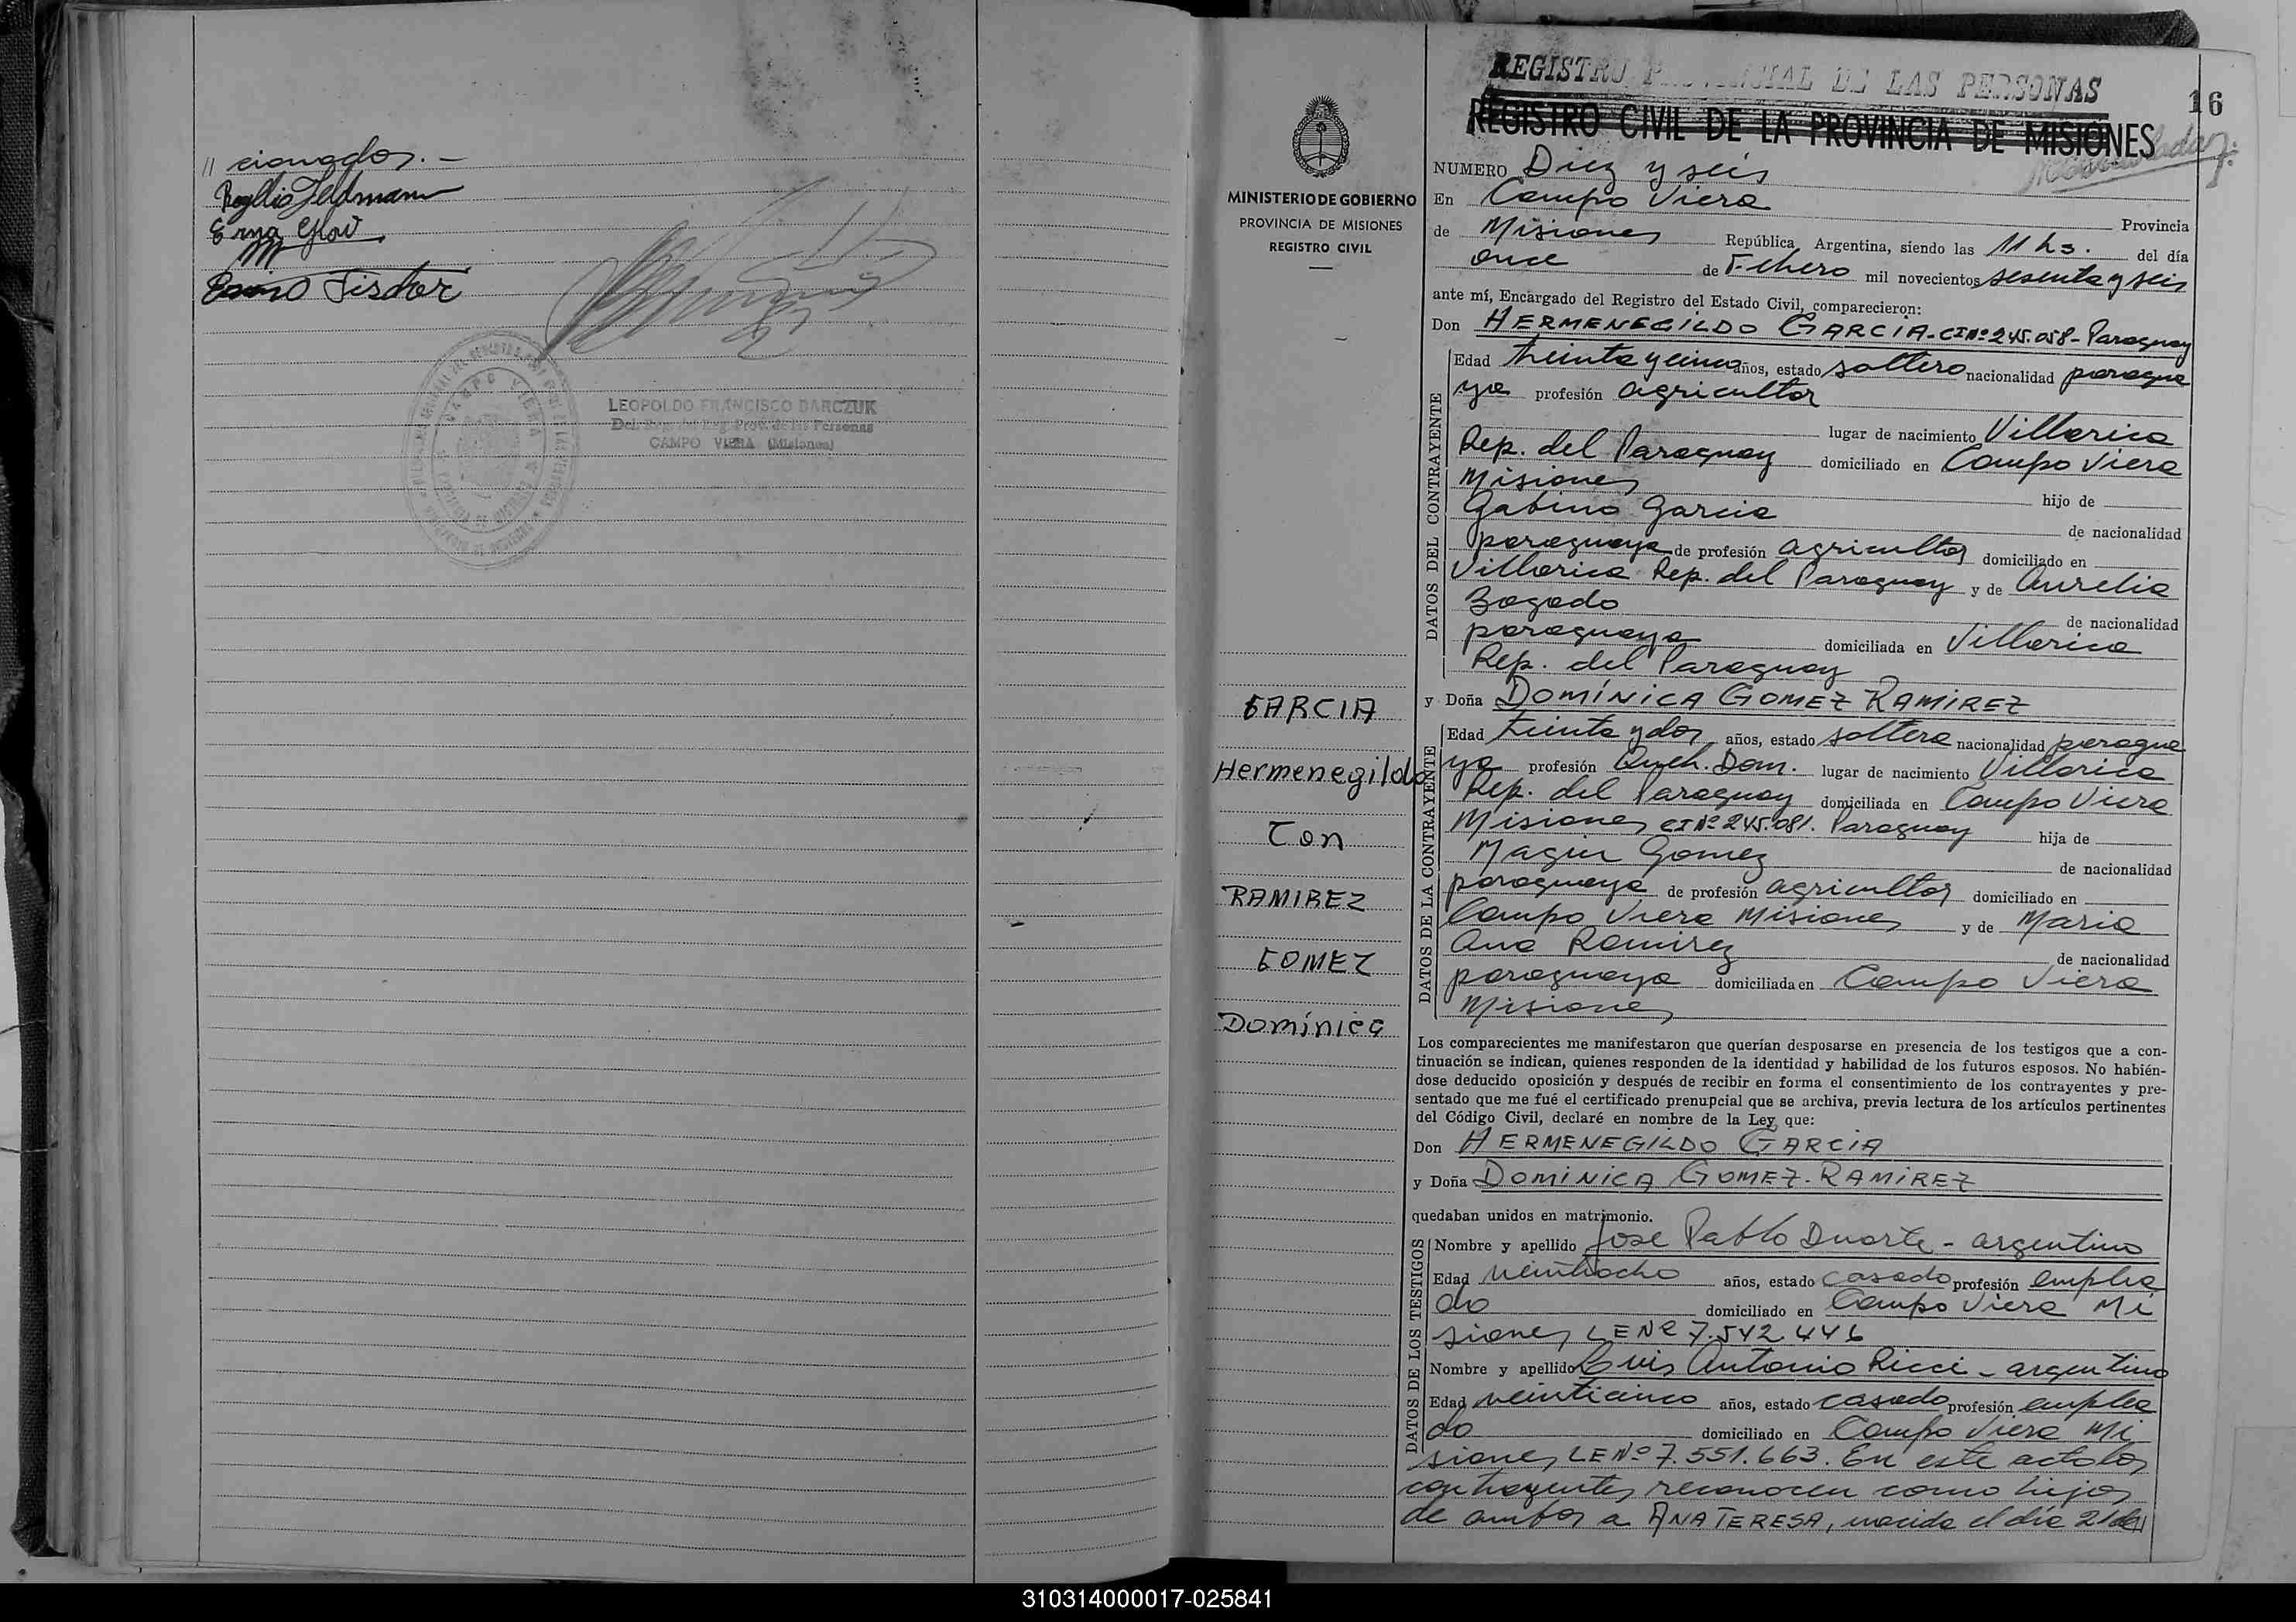 // cionados.–
Rogelio Feldmann
Erna Glou
Fischer
CAMPO VIERA
LEOPOLDO FRANCISCO DARCZUK
Del. Reg. Prov. de las Personas
CAMPO VIERA (Misiones)
MINISTERIO DE GOBIERNO
PROVINCIA DE MISIONES
REGISTRO CIVIL
GARCIA
Hermenegildo
Con
RAMIREZ
GOMEZ
Domínica
REGISTRO PROVINCIAL DE LAS PERSONAS
16
REGISTRO CIVIL DE LA PROVINCIA DE MISIONES
NUMERO Diez y seis
En Campo Viera
Provincia
de Misiones República Argentina, siendo las 11 hs. del día
once de Febrero mil novecientos sesenta y seis
ante mí, Encargado del Registro del Estado Civil, comparecieron:
Don HERMENEGILDO GARCIA-CI Nº 245.058- Paraguay
DATOS DEL CONTRAYENTE
Edad treinta y cinco años, estado soltero nacionalidad paragua
ya profesión agricultor
lugar de nacimiento Villarica
Rep. del Paraguay domiciliado en Campo Viera
Misiones hijo de
Gabino Garcia de nacionalidad
paraguaya de profesión agricultor domiciliado en
Villarica Rep. del Paraguay y de Aurelia
Bogado de nacionalidad
paraguaya domiciliada en Villarica
Rep. del Paraguay
y Doña DOMÍNICA GOMEZ RAMIREZ
DATOS DE LA CONTRAYENTE
Edad treinta y dos años, estado soltera nacionalidad paragua
ya profesión Queh. Dom. lugar de nacimiento Villarica
Rep. del Paraguay domiciliada en Campo Viera
Misiones CI Nº 245.081. Paraguay hija de
Magin Gomez de nacionalidad
paraguaya de profesión agricultor domiciliado en
Campo Viera Misiones y de Maria
Ana Ramirez de nacionalidad
paraguaya domiciliada en Campo Viera
Misiones
Los comparecientes me manifestaron que querían desposarse en presencia de los testigos que a con-
tinuación se indican, quienes responden de la identidad y habilidad de los futuros esposos. No habién-
dose deducido oposición y después de recibir en forma el consentimiento de los contrayentes y pre-
sentado que me fué el certificado prenupcial que se archiva, previa lectura de los artículos pertinentes
del Código Civil, declaré en nombre de la Ley que:
Don HERMENEGILDO GARCIA
y Doña DOMINICA GOMEZ-RAMIREZ
quedaban unidos en matrimonio.
DATOS DE LOS TESTIGOS
Nombre y apellido Jose Pablo Duarte - argentino
Edad veintiocho años, estado casado profesión emplea
do domiciliado en Campo Viera Mi
siones LE Nº 7.542.446
Nombre y apellido Luis Antonio Ricci - argentino
Edad veinticinco años, estado casado profesión emplea
do domiciliado en Campo Viera Mi
siones LE Nº 7.551.663. En este acto los
contrayentes reconocen como hijos
de ambos a ANA TERESA, nacida el día 21 de//
310314000017-025841